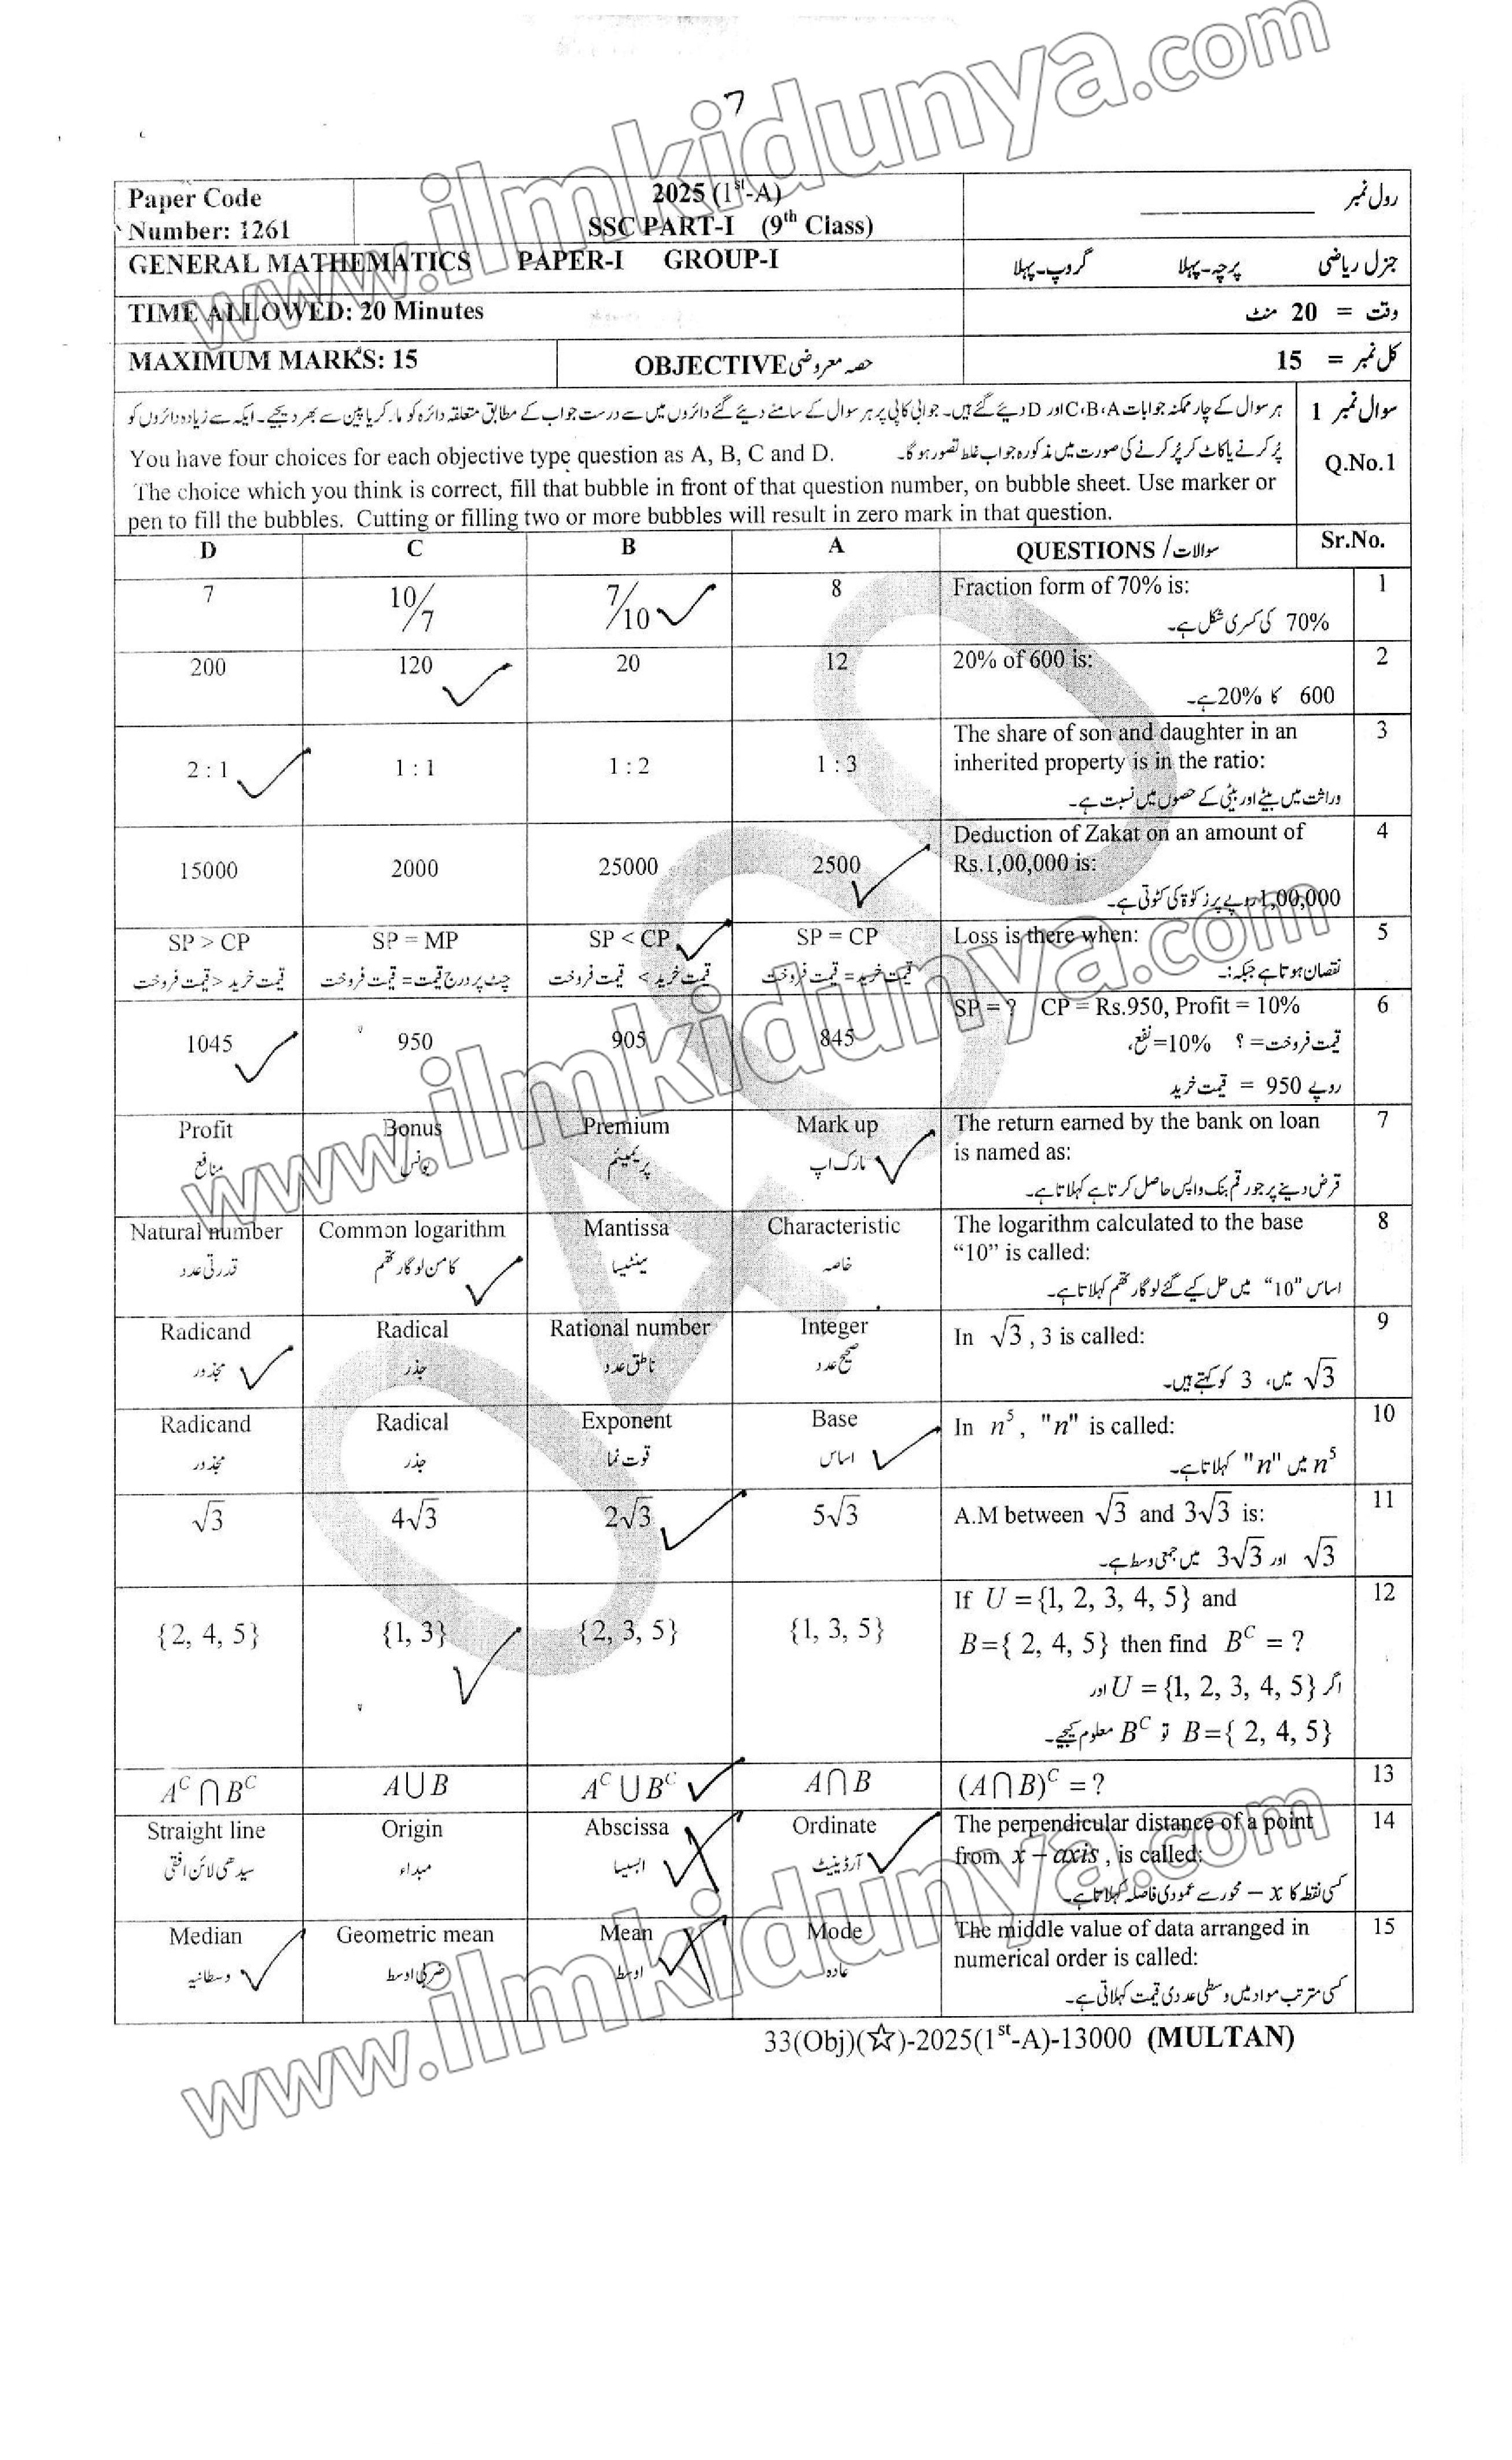 www.ilmkidunya.com
7
Paper Code
Number: 1261
2025 (1st-A)
SSC PART-I (9th Class)
رول نمبر ____________
GENERAL MATHEMATICS PAPER-I GROUP-I
جنرل ریاضی پرچہ۔پہلا گروپ۔پہلا
TIME ALLOWED: 20 Minutes
وقت = 20 منٹ
MAXIMUM MARKS: 15
OBJECTIVE حصہ معروضی
کل نمبر = 15
سوال نمبر 1
Q.No.1
ہر سوال کے چار ممکنہ جوابات C،B،A اور D دیئے گئے ہیں۔ جوابی کاپی پر ہر سوال کے سامنے دیئے گئے دائروں میں سے درست جواب کے مطابق متعلقہ دائرہ کو مارکر یا پین سے بھر دیجیے۔ ایک سے زیادہ دائروں کو
پُر کرنے یا کاٹ کر پُر کرنے کی صورت میں مذکورہ جواب غلط تصور ہو گا۔
You have four choices for each objective type question as A, B, C and D.
The choice which you think is correct, fill that bubble in front of that question number, on bubble sheet. Use marker or
pen to fill the bubbles. Cutting or filling two or more bubbles will result in zero mark in that question.
D C B A QUESTIONS / سوالات Sr.No.
7 10/7 7/10 8 Fraction form of 70% is: 1
70% کی کسری شکل ہے۔
200 120 20 12 20% of 600 is: 2
600 کا 20% ہے۔
2 : 1 1 : 1 1 : 2 1 : 3 The share of son and daughter in an 3
inherited property is in the ratio:
وراثت میں بیٹے اور بیٹی کے حصوں میں نسبت ہے۔
15000 2000 25000 2500 Deduction of Zakat on an amount of 4
Rs.1,00,000 is:
1,00,000 روپے پر زکوٰۃ کی کٹوتی ہے۔
SP > CP SP = MP SP < CP SP = CP Loss is there when: 5
قیمت خرید < قیمت فروخت چٹ پر درج قیمت = قیمت فروخت قیمت خرید > قیمت فروخت قیمت خرید = قیمت فروخت نقصان ہوتا ہے جبکہ:۔
1045 950 905 845 SP = ? CP = Rs.950, Profit = 10% 6
قیمت فروخت = ؟ 10% = نفع،
روپے 950 = قیمت خرید
Profit Bonus Premium Mark up The return earned by the bank on loan 7
is named as:
منافع بونس پریمیئم مارک اپ
قرض دینے پر جو رقم بنک واپس حاصل کرتا ہے کہلاتا ہے۔
Natural number Common logarithm Mantissa Characteristic The logarithm calculated to the base 8
“10” is called:
قدرتی عدد کامن لوگارتھم مینٹیسا خاصہ
اساس “10” میں حل کیے گئے لوگارتھم کہلاتا ہے۔
Radicand Radical Rational number Integer In √3 , 3 is called: 9
مجذور جذر ناطق عدد صحیح عدد
√3 میں، 3 کو کہتے ہیں۔
Radicand Radical Exponent Base In n⁵, "n" is called: 10
مجذور جذر قوت نما اساس
n⁵ میں "n" کہلاتا ہے۔
√3 4√3 2√3 5√3 A.M between √3 and 3√3 is: 11
√3 اور 3√3 میں جمعی وسط ہے۔
{2, 4, 5} {1, 3} {2, 3, 5} {1, 3, 5} If U = {1, 2, 3, 4, 5} and 12
B = { 2, 4, 5} then find Bᶜ = ?
اگر U = {1, 2, 3, 4, 5} اور
B = { 2, 4, 5} تو Bᶜ معلوم کیجیے۔
Aᶜ ⋂ Bᶜ A⋃B Aᶜ ⋃ Bᶜ A⋂B (A⋂B)ᶜ = ? 13
Straight line Origin Abscissa Ordinate The perpendicular distance of a point 14
from x – axis, is called:
سیدھی لائن افقی مبداء ابسیسا آرڈینیٹ
کسی نقطہ کا x – محور سے عمودی فاصلہ کہلاتا ہے۔
Median Geometric mean Mean Mode The middle value of data arranged in 15
numerical order is called:
وسطانیہ ضربی اوسط اوسط عادہ
کسی مرتب مواد میں وسطی عددی قیمت کہلاتی ہے۔
33(Obj)(☆)-2025(1st-A)-13000 (MULTAN)
www.ilmkidunya.com
www.ilmkidunya.com